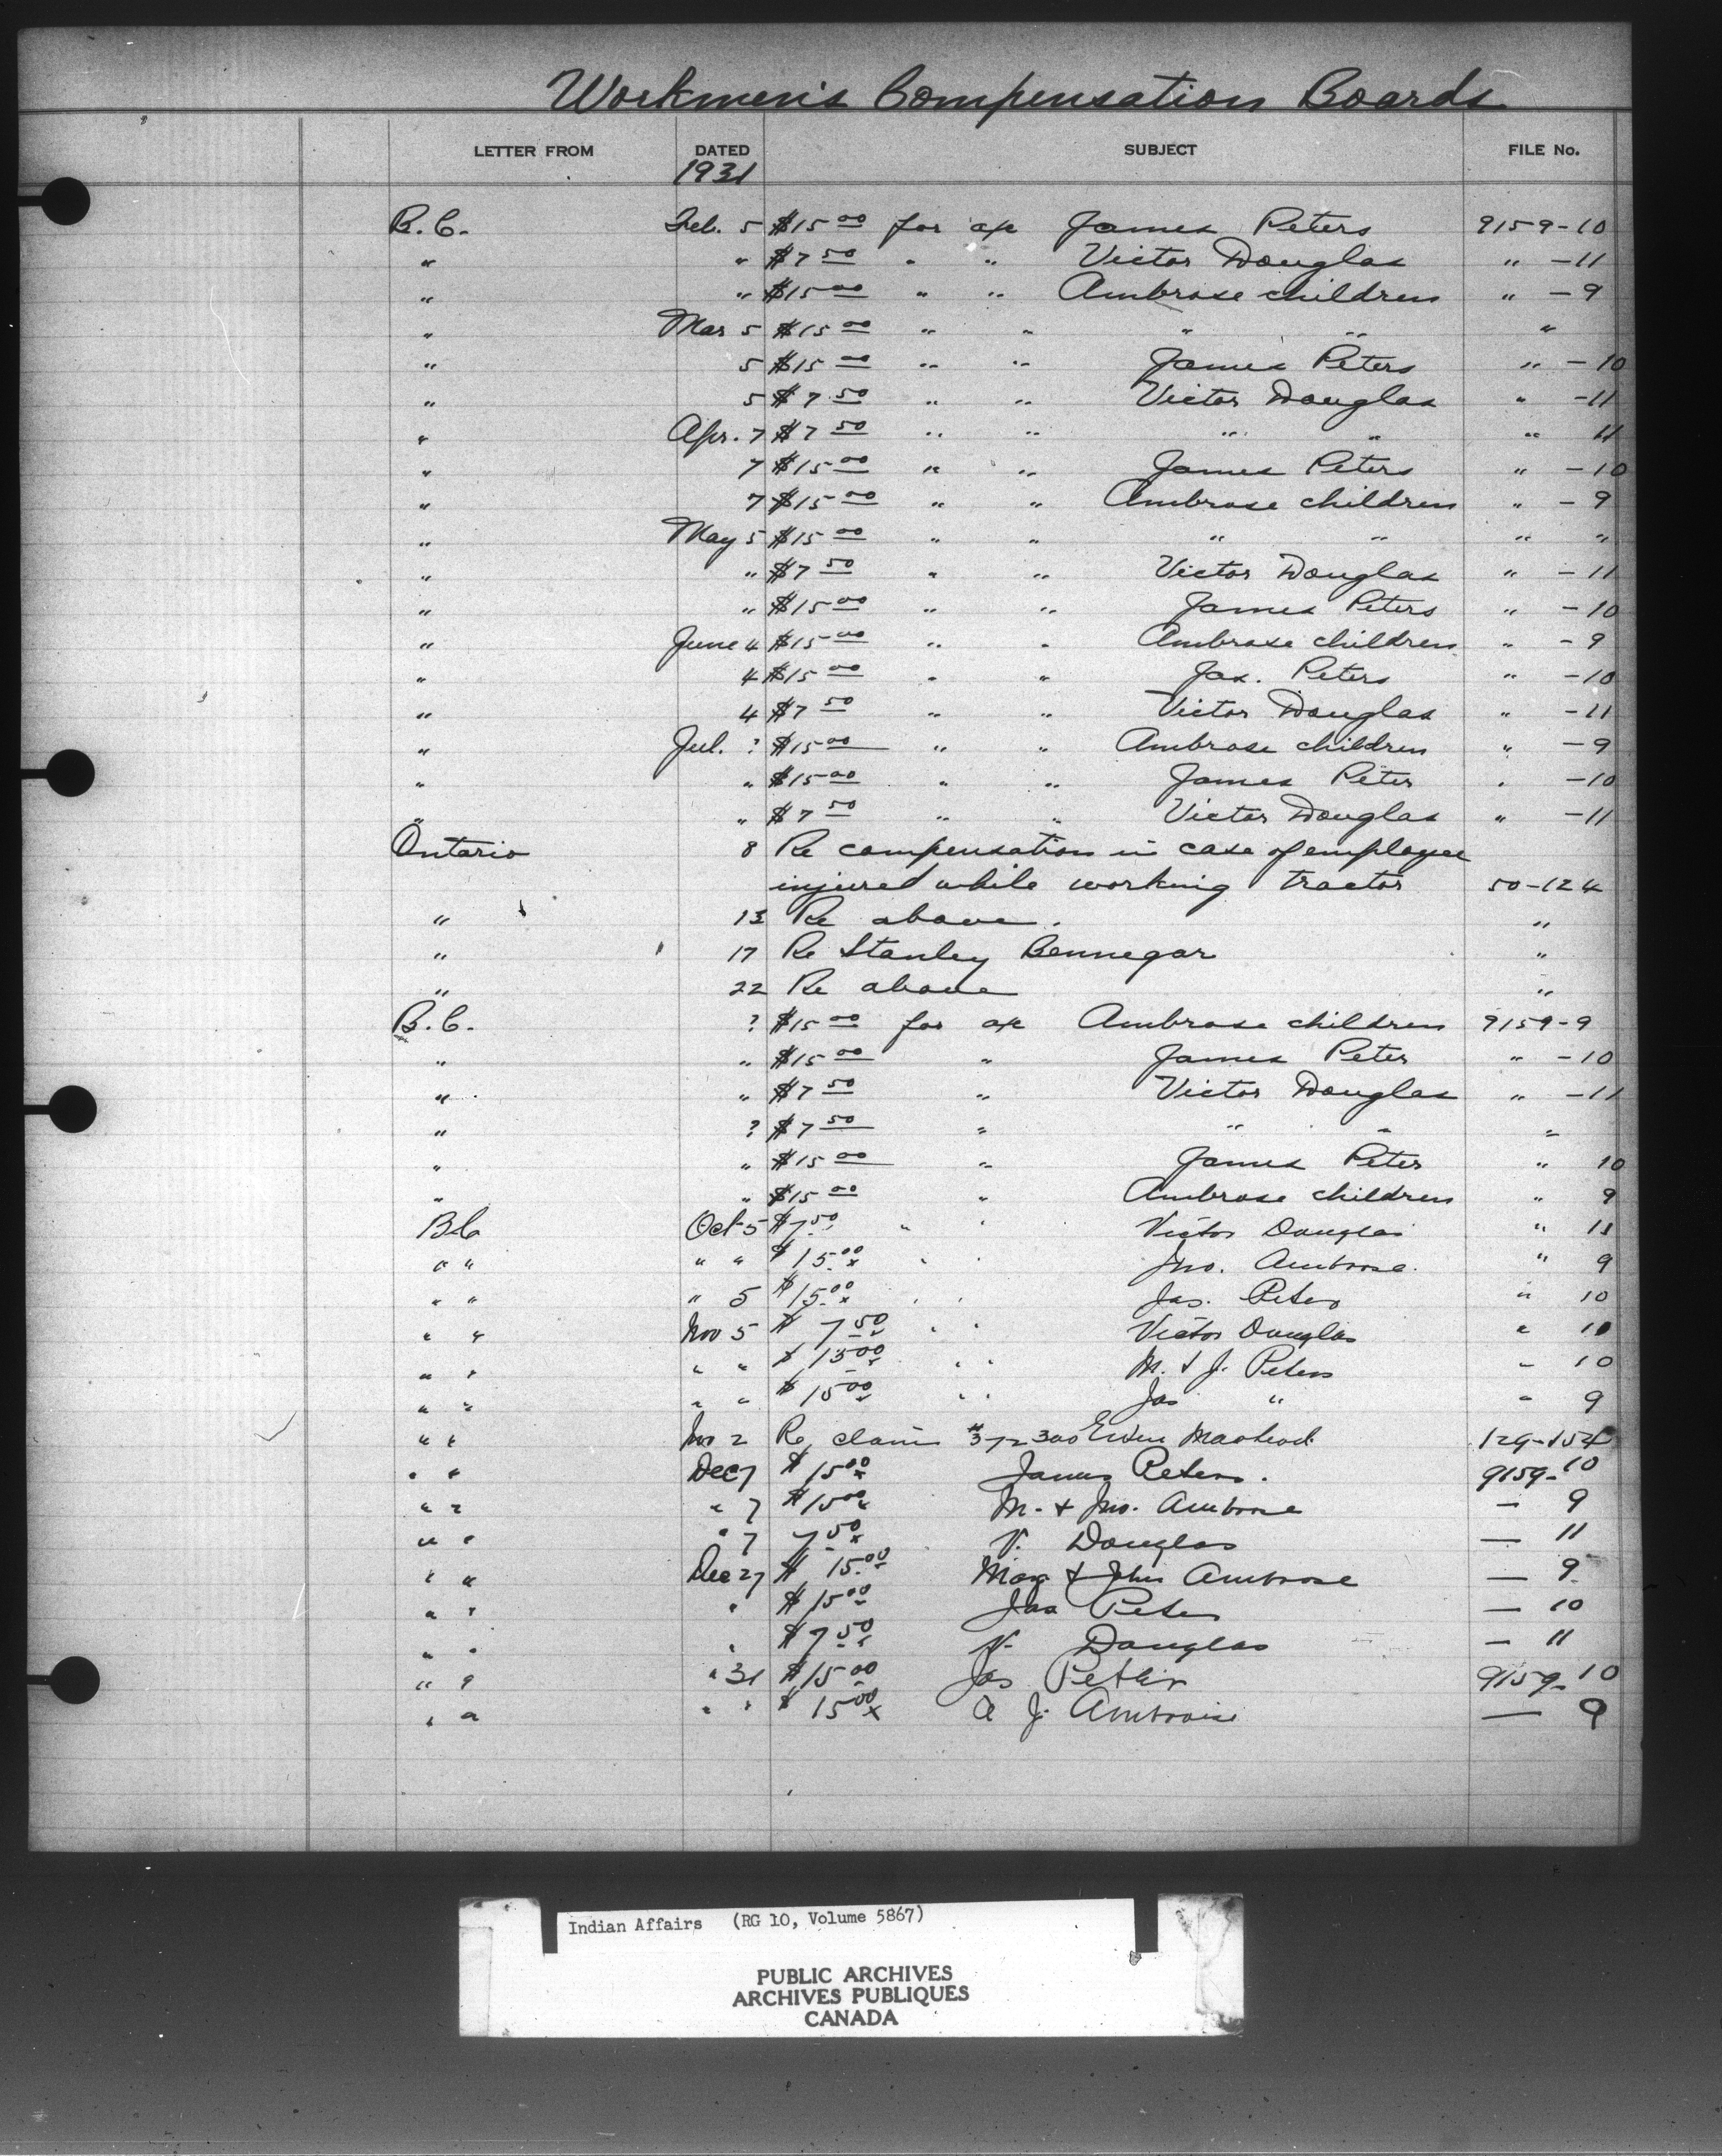 Workmen's Compensation Boards
LETTER FROM DATED SUBJECT FILE No.
1931
B.C. Feb. 5 $15 00 for a/c James Peters 9159-10
" " $7 50 " " Victor Douglas " -11
" " $15 00 " " Ambrose children " -9
" Mar 5 $15 00 " " " " "
" 5 $15 00 " " James Peters " -10
" 5 $7 50 " " Victor Douglas " -11
" Apr. 7 $7 50 " " " " " 11
" 7 $15 00 " " James Peters " -10
" 7 $15 00 " " Ambrose children " -9
" May 5 $15 00 " " " " " "
" " $7 50 " " Victor Douglas " -11
" " $15 00 " " James Peters " -10
" June 4 $15 00 " " Ambrose children " -9
" 4 $15 00 " " Jas. Peters " -10
" 4 $7 50 " " Victor Douglas " -11
" Jul. ? $15 00 " " Ambrose children " -9
" " $15 00 " " James Peter " -10
" " $7 50 " " Victor Douglas " -11
Ontario 8 Re compensation in case of employee
injured while working tractor 50-124
" 13 Re above. "
" 17 Re Stanley Bennegar "
" 22 Re above "
B.C. ? $15 00 for a/c Ambrose children 9159-9
" " $15 00 " James Peter " -10
" " $7 50 " Victor Douglas " -11
" ? $7 50 " " " "
" " $15 00 " James Peter " 10
" " $15 00 " Ambrose children " 9
B C Oct 5 $7 50 " " Victor Douglas " 11
" " " " $15.00 " " Jno. Ambrose. " 9
" " " 5 $15.00 " " Jas. Peters " 10
" " Nov 5 $7 50 " " Victor Douglas " 10
" " " " $15 00 " " M. & J. Peters " 10
" " " " $15 00 " " Jas " " 9
" " Nov 2 Re claim #372300 129-154
" " Dec 7 $15 00 James Peters. 9159-10
" " " 7 $15 00 M. & Jno. Ambrose — 9
" " " 7 7 50 V. Douglas — 11
" " Dec 27 $15.00 Mary & John Ambrose — 9
" " " $15 00 Jas Peter — 10
" " " $7 50 V. Douglas — 11
" " " 31 $15 00 Jas 9159-10
" " " " $15 00 a J. Ambroise — 9
Indian Affairs (RG 10, Volume 5867)
PUBLIC ARCHIVES
ARCHIVES PUBLIQUES
CANADA